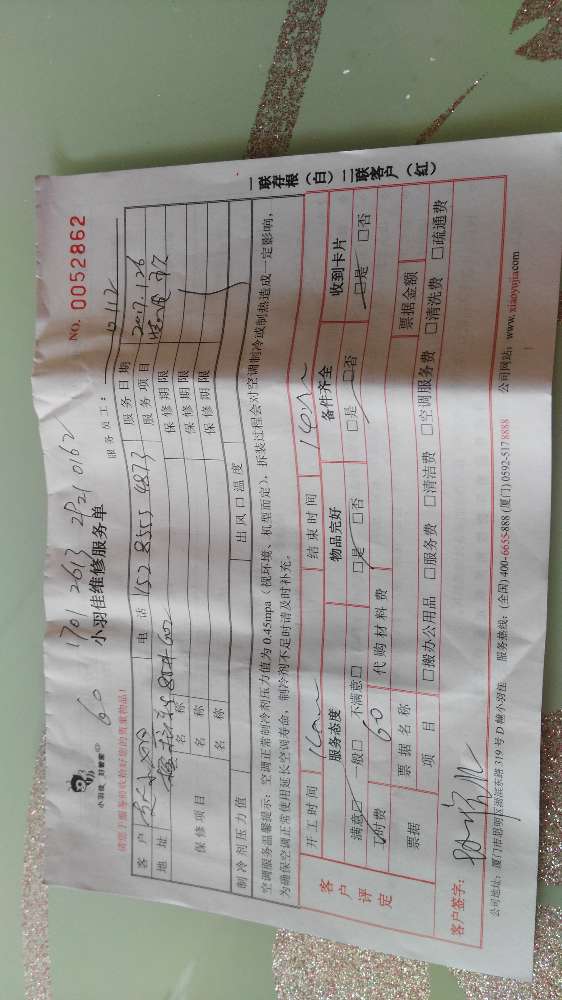 60 1701 2613 2921 0162
NO. 0052862
小羽佳 好管家
小羽佳维修服务单
服务员工： 0112
请您于服务前收拾好您的贵重物品！
客 户 电 话 152 8555 4873 服务日期 2017.1.26
地 址 服务项目
保修项目 名 称 保修期限
名 称 保修期限
名 称 保修期限
制冷剂压力值 出风口温度
空调服务温馨提示：空调正常制冷剂压力值为 0.45mpa（视环境、机型而定），拆装过程会对空调制冷或制热造成一定影响，
为确保空调正常使用延长空调寿命，制冷剂不足时请及时补充。
客户评定 开工时间 结束时间
服务态度 物品完好 备件齐全 收到卡片
满意☑ 一般□ 不满意□ □是 □否 □是 □否 □是 □否
工时费 60 代购材料费
票据 票据名称 票据金额
项 目 □搬办公用品 □服务费 □清洁费 □空调服务费 □清洗费 □疏通费
客户签字：
公司地址：厦门市思明区湖滨东路 319 号 D 幢小羽佳 服务热线：(全国) 400-6655-888 (厦门) 0592-5178888 公司网站：www.xiaoyujia.com
一联存根（白）二联客户（红）